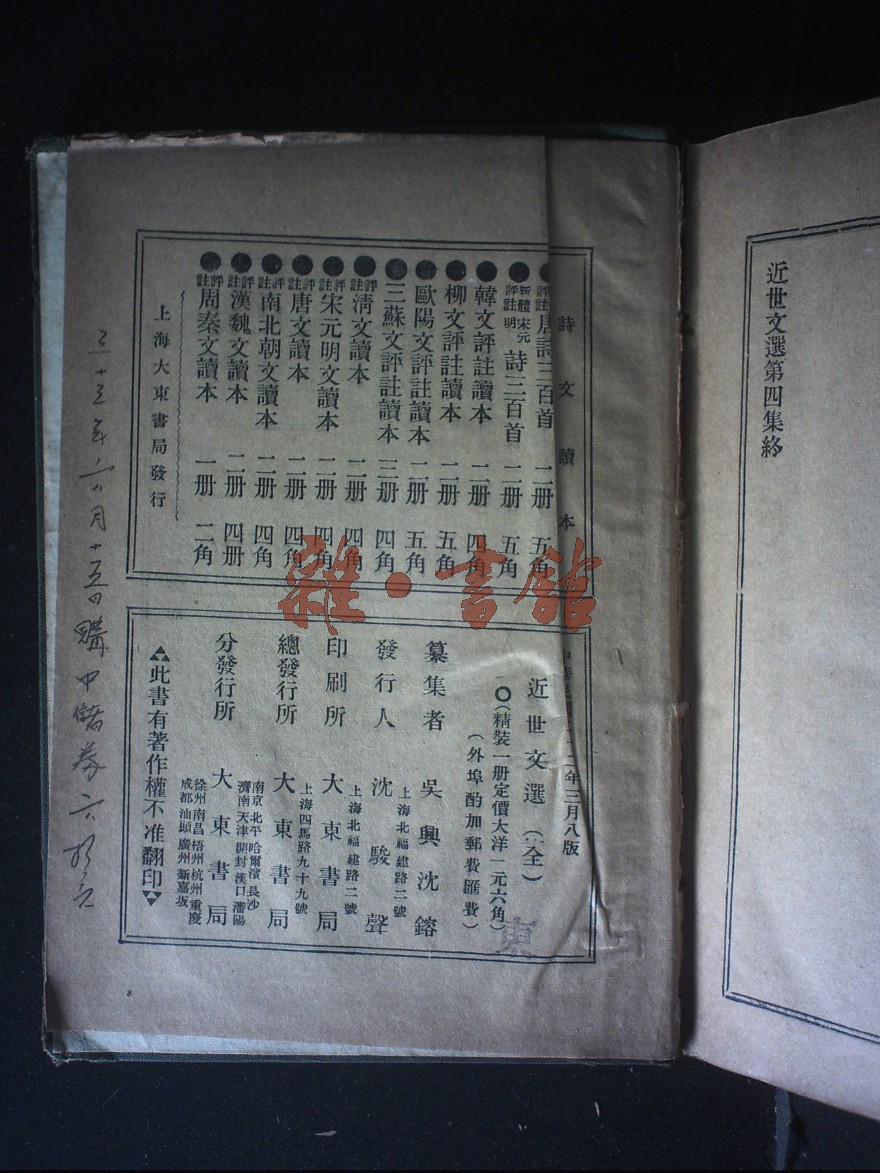 近世文選第四集終
詩文讀本
評註唐詩三百首 二册 五角
新體評註宋元明詩三百首 二册 五角
韓文評註讀本 二册 四角
柳文評註讀本 二册 五角
歐陽文評註讀本 二册 五角
三蘇文評註讀本 三册 四角
評註清文讀本 二册 四角
評註宋元明文讀本 二册 四角
評註唐文讀本 二册 四角
評註南北朝文讀本 二册 四角
評註漢魏文讀本 二册 四册
評註周秦文讀本 一册 二角
上海大東書局發行
二年三月八版
近世文選（全）
（精裝一册定價大洋一元六角）
（外埠酌加郵費匯費）
纂集者 吳興沈鎔
上海北福建路二號
發行人 沈駿聲
上海北福建路二號
印刷所 大東書局
上海四馬路九十九號
總發行所 大東書局
南京北平哈爾濱長沙
濟南天津開封漢口瀋陽
分發行所 大東書局
徐州南昌梧州杭州重慶
成都汕頭廣州新嘉坡
此書有著作權不准翻印
三十三年六月十五日購中儲券六拾元
東
雜·書館